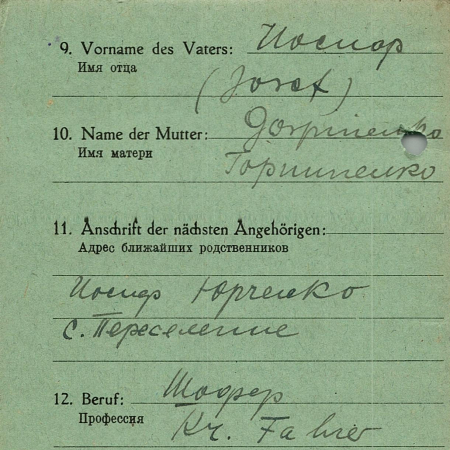 9. Vorname des Vaters: Иосиф
Имя отца
(Josef)
10. Name der Mutter:
Имя матери
11. Anschrift der nächsten Angehörigen:
Адрес ближайших родственников
Иосиф Юрченко
с. Переселение
12. Beruf: Шофер
Профессия
Kr. Fahrer